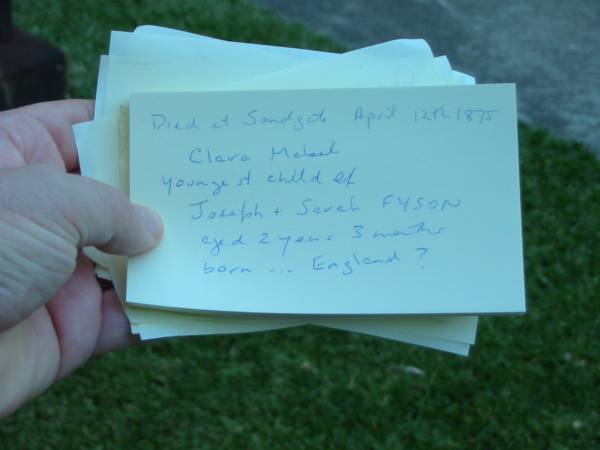 Died at Sandgate April 12th 1875
Clara Mabel
youngest child of
Joseph + Sarah FYSON
aged 2 years 3 months
born ... England ?